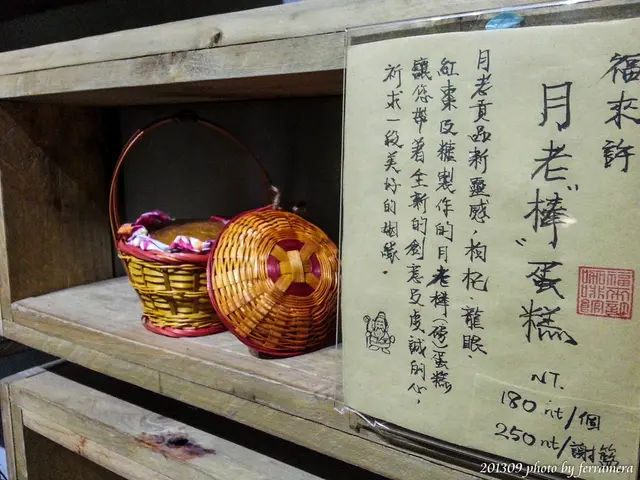 福來許
月老"棒"蛋糕
NT.
180 nt/個
250 nt/謝籃
月老貢品新靈感，枸杞、龍眼、
紅棗及糖製作的月老棒(磅)蛋糕
讓您帶著全新的創意及虔誠的心，
祈求一段美好的姻緣。
201309 photo by ferramera